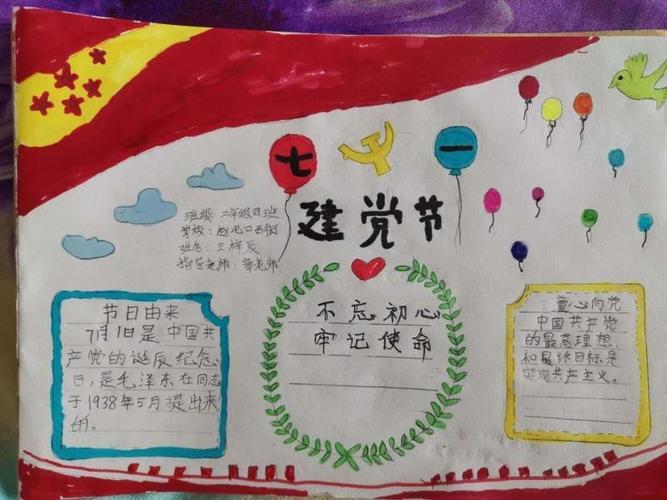 七 一
建党节
班级：二年级四班
学校：赵北口西街
姓名：王梓辰
指导老师：章老师
节日由来
7月1日是中国共
产党的诞辰纪念
日，是毛泽东在同志
于1938年5月提出来
的。
不忘初心
牢记使命
童心向党
中国共产党
的最高理想
和最终目标是
实现共产主义。